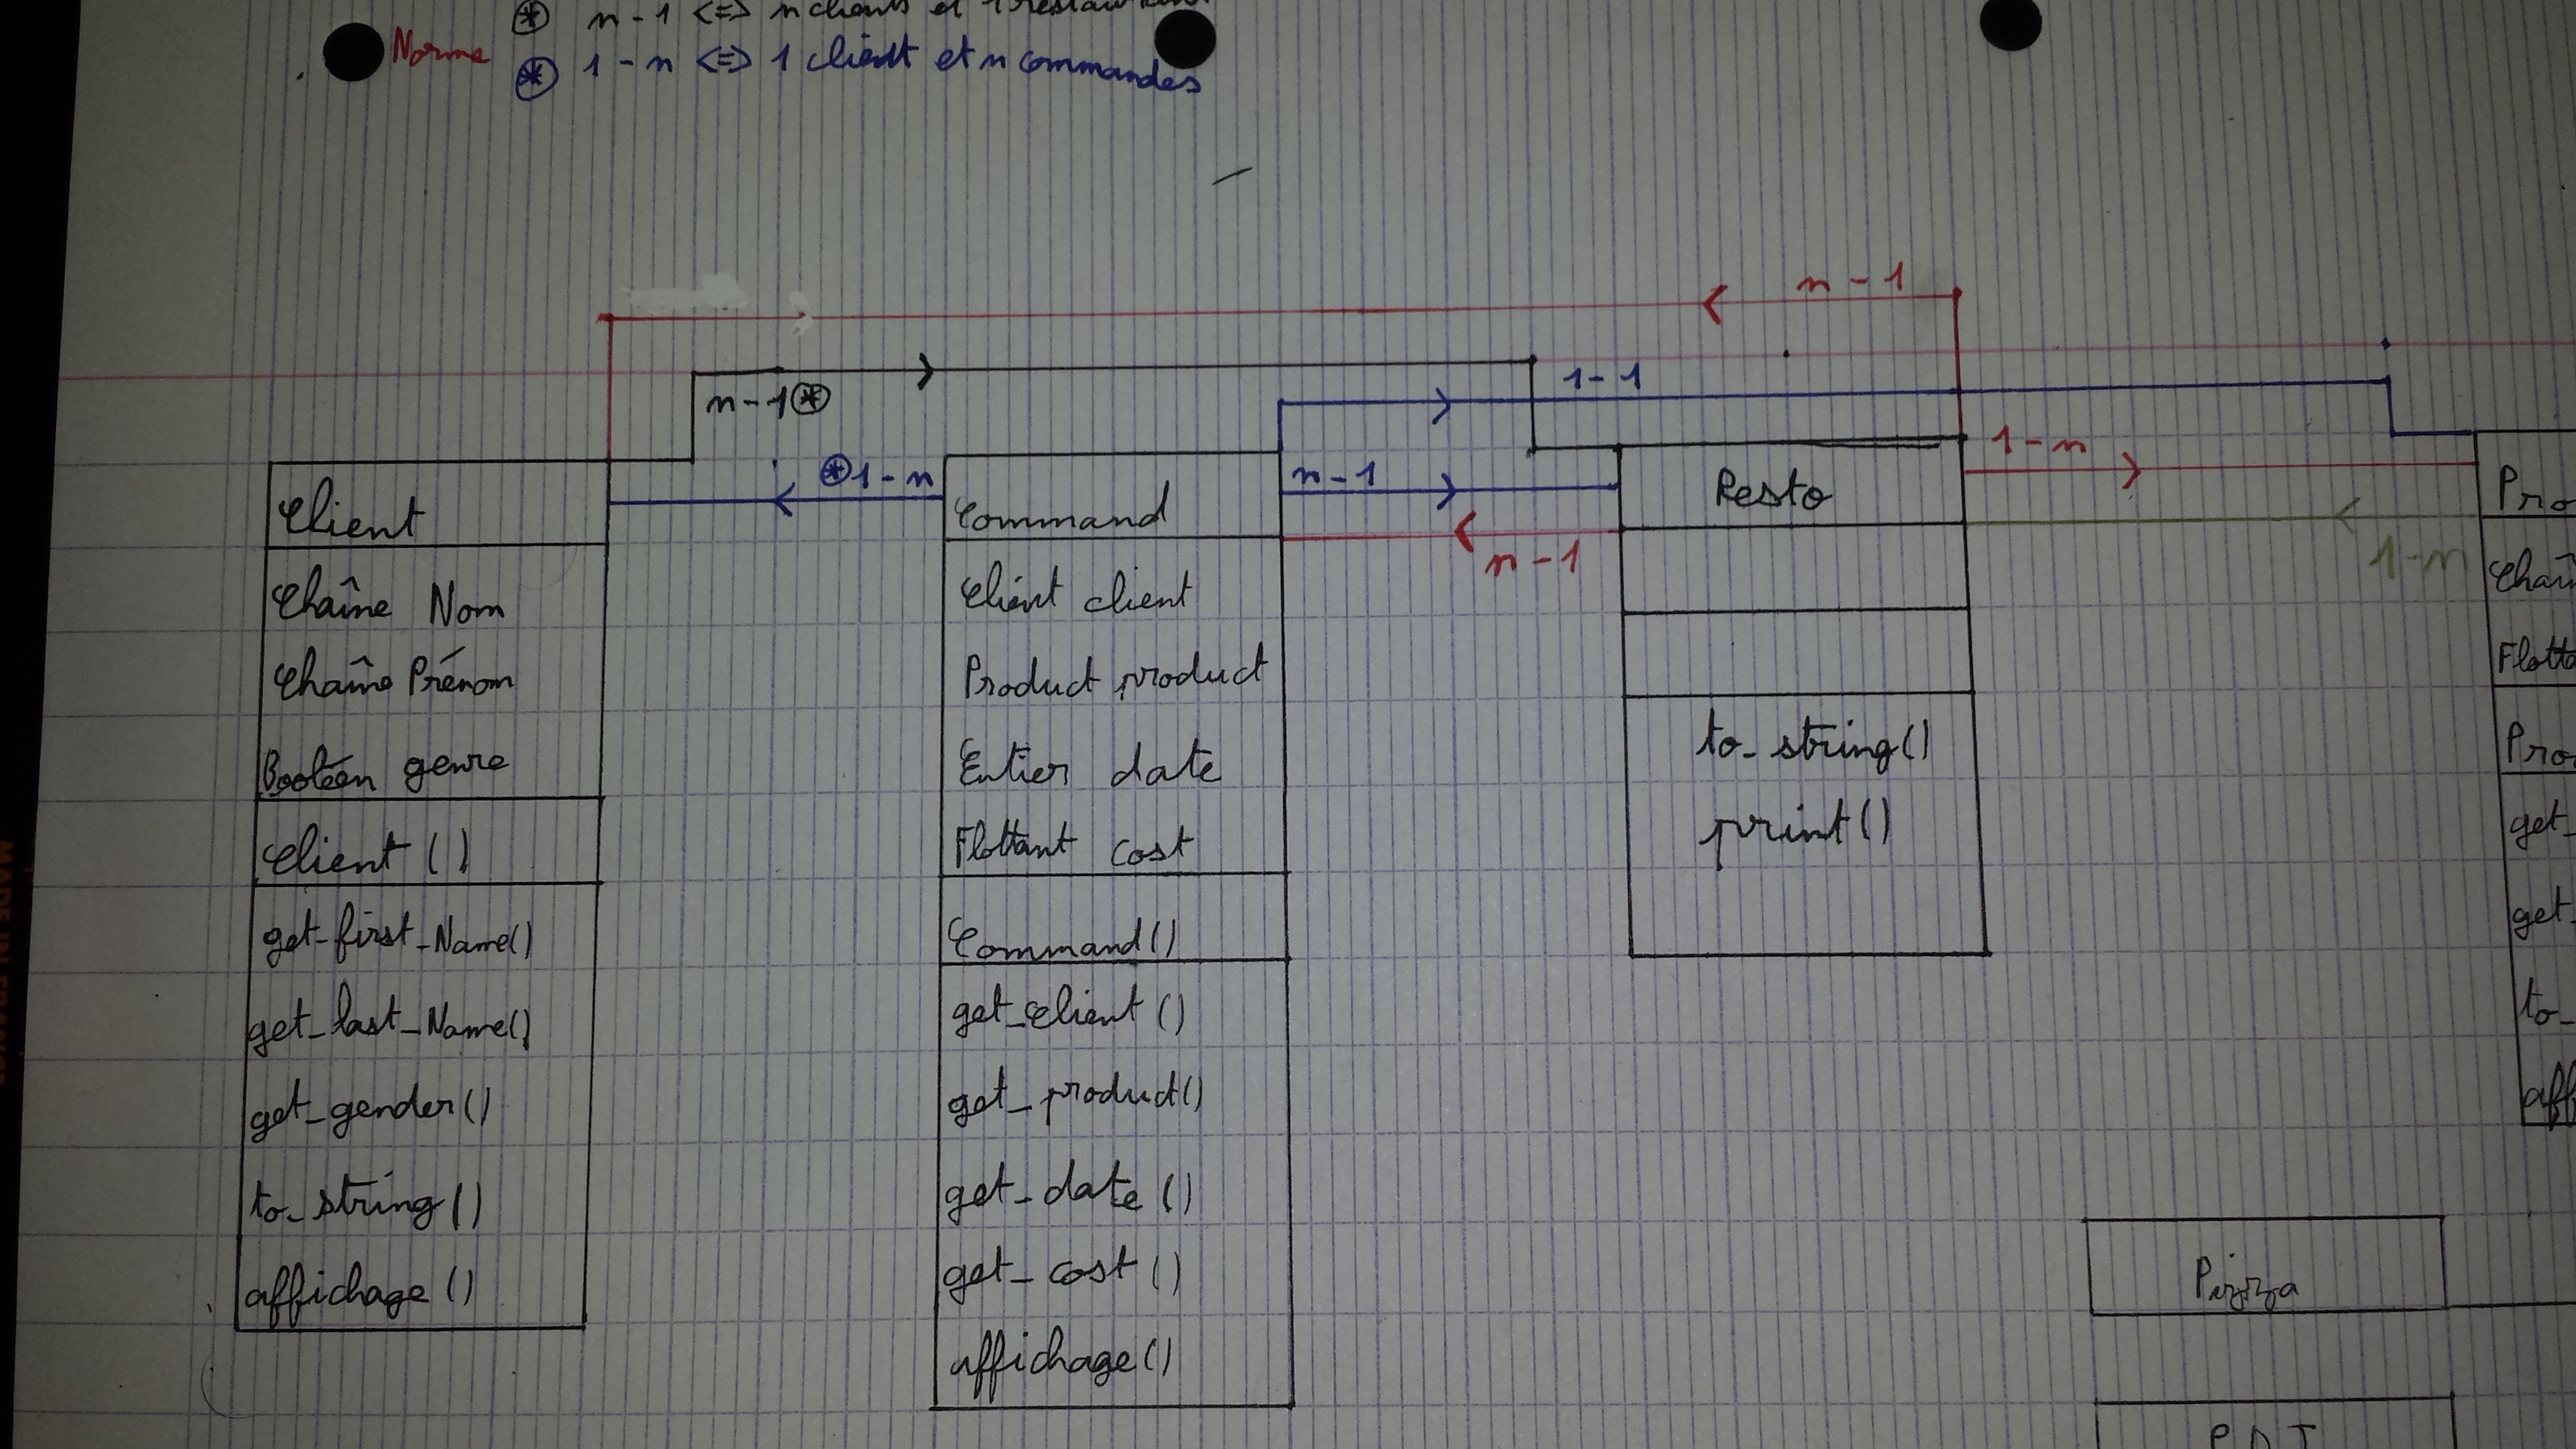 n - 1 <=> n clients et 1 restaurant
Norme
1 - n <=> 1 client et n commandes
n - 1
n - 1
1 - 1
1 - n
1 - n
n - 1
n - 1
1 - n
Client
Chaîne Nom
Chaîne Prénom
Booléen genre
Client ()
get_first_Name()
get_last_Name()
get_gender()
to_string()
affichage ()
Command
Client client
Product product
Entier date
Flottant cost
Command()
get_client ()
get_product()
get_date ()
get_cost ()
affichage()
Resto
to_string()
print()
Pro
Chaî
Flotta
Pro
get_
get_
to_
aff
Pizza